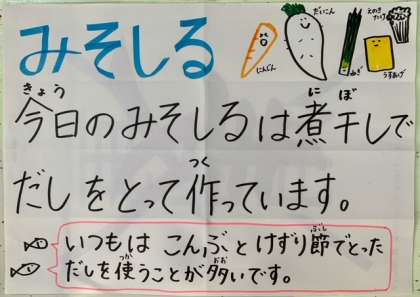 みそしる
にんじん
だいこん
ねぎ
うすあげ
えのき
たけ
きょう
今日のみそしるは煮干しで
に ぼ
だしをとって作っています。
つく
いつもは こんぶと けずり節でとった
ぶし
だしを使うことが多いです。
つか おお